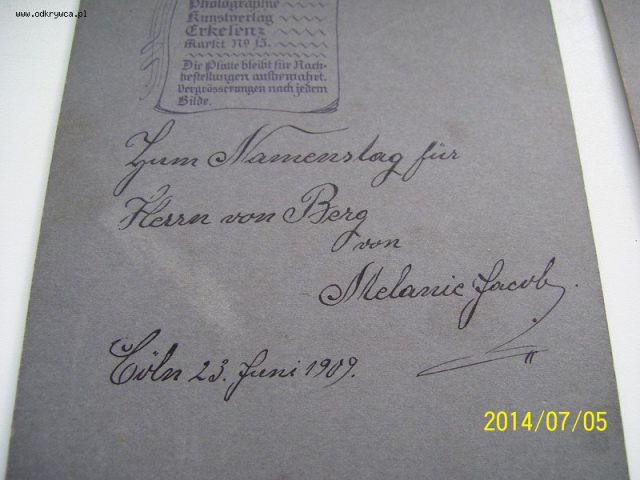 www.odkrywca.pl
Photographie
Kunstverlag
Erkelenz
Markt No 15.
Die Platte bleibt für Nach-
bestellungen aufbewahrt.
Vergrösserungen nach jedem
Bilde.
Zum Namenstag für
Herrn von Berg
von
Melanie Jacob.
Cöln 23. Juni 1909.
2014/07/05